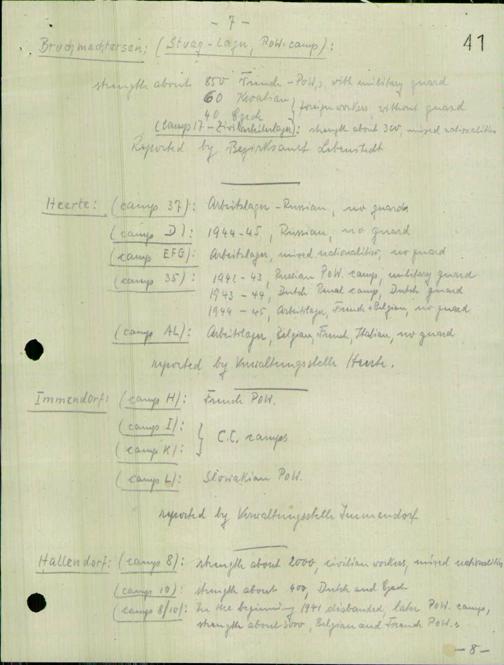 - 7 -
41
Bruchmachtersen: (Stuag-Lager, PoW-camp):
strength about 850 French-PoWs, with military guard
60 Kroatian } foreign workers, without guard
40 Czech
(camp 17 - Zivilarbeiterlager): strength about 300, mixed nationalities
Reported by Bezirksamt Lebenstedt
Heerte: (camp 37): Arbeitslager - Russian, no guards
(camp D): 1944-45, Russian, no guard
(camp EFG): Arbeitslager, mixed nationalities, no guard
(camp 35): 1942-43, Russian PoW. camp, military guard
1943-44, Dutch Penal camp, Dutch guard
1944-45, Arbeitslager, French + Belgian, no guard
(camp AL): Arbeitslager, Belgian, French, Italian, no guard
reported by Verwaltungsstelle Heerte.
Immendorf: (camp H): French PoW.
(camp I): } C.C. camps
(camp K):
(camp L): Slowakian PoW.
reported by Verwaltungsstelle Immendorf
Hallendorf: (camp 8): strength about 2000, civilian workers, mixed nationalities
(camp 10): strength about 400, Dutch and Czech
(camp 8/10): In the beginning 1941 disbanded, later PoW. camps,
strength about 3000, Belgian and French PoW.s
- 8 -